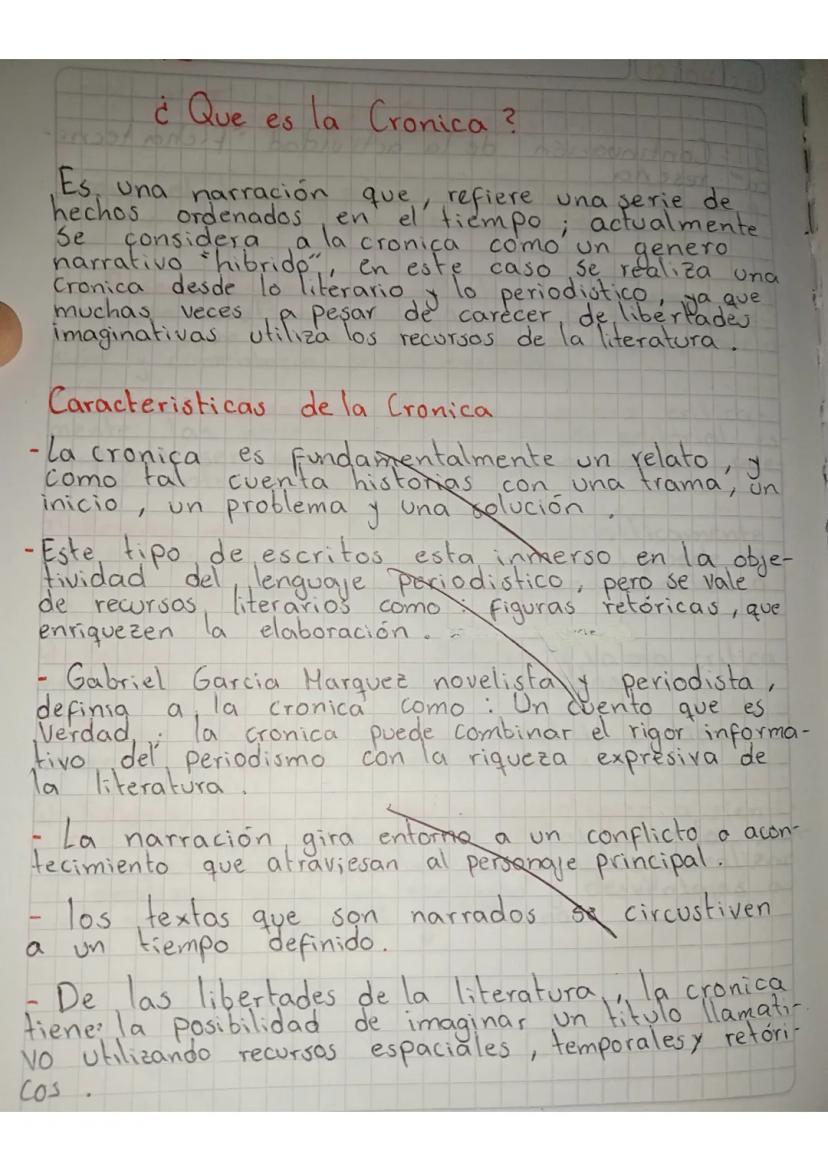 ¿ Que es la Cronica ?
Es una narración que, refiere una serie de
hechos ordenados en el tiempo ; actualmente
se considera a la cronica como un genero
narrativo "hibrido", en este caso se realiza una
Cronica desde lo literario y lo periodistico, ya que
muchas veces a pesar de carecer de libertades
imaginativas utiliza los recursos de la literatura .
Caracteristicas de la Cronica
- La cronica es fundamentalmente un relato, y
como tal cuenta historias con una trama, un
inicio, un problema y una solución .
- Este tipo de escritos esta inmerso en la obje-
tividad del lenguaje periodistico, pero se vale
de recursos literarios como : figuras retóricas, que
enriquezen la elaboración .
- Gabriel Garcia Marquez novelista y periodista,
definia a la cronica como : Un cuento que es
Verdad ; la cronica puede combinar el rigor informa-
tivo del periodismo con la riqueza expresiva de
la literatura .
- La narración gira entorno a un conflicto o acon-
tecimiento que atraviesan al personaje principal .
- los textos que son narrados se circustiven
a un tiempo definido .
- De las libertades de la literatura, la cronica
tiene la posibilidad de imaginar un titulo llamati-
vo utilizando recursos espaciales, temporales y retóri-
cos .